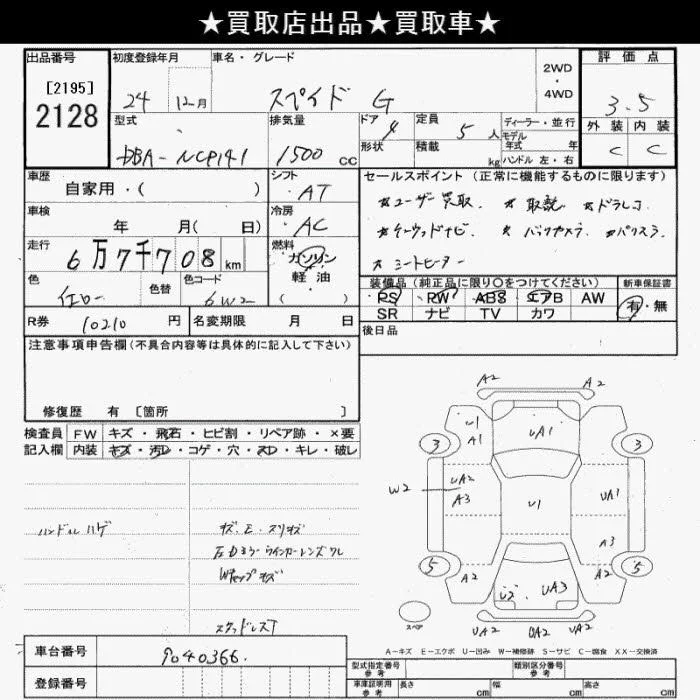 ★買取店出品★買取車★
出品番号
[2195]
2128
初度登録年月
24 12月
車名・グレード
スペイド G
2WD
・
4WD
評価点
3.5
外装 内装
C C
型式
DBA-NCP141
排気量
1500 cc
ドア 4
形状
定員 5人
積載 kg
ディーラー・並行
モデル
年式 年
ハンドル 左・右
車歴
自家用・( )
シフト
・AT
セールスポイント (正常に機能するものに限ります)
★ユーザー買取. ★取説 ★ドラレコ
★ケーウッドナビ ・バックカメラ ★パワスラ.
★シートヒーター
車検
年 月( 日)
冷房
・AC
走行
6万7千708km
燃料
ガソリン
軽油
( )
色
イエロー
色替
色コード
6W2
装備品 (純正品に限り○をつけてください)
PS PW ABS エアB AW
SR ナビ TV カワ
新車保証書
有・無
R券 10210円
名変期限 月 日
後日品
注意事項申告欄(不具合内容等は具体的に記入して下さい)
修復歴 有 [箇所 ]
検査員 FW キズ・飛石・ヒビ割・リペア跡・×要
記入欄 内装 キズ・汚レ・コゲ・穴・スレ・キレ・破レ
ハンドルハゲ
キズ.E.スリキズ
右Dミラーウインカーレンズワレ
スタッドレスT
A2 A2
U1
A1
UA1
3 3
W2
UA2
A3
U1
UA1
A3
5 5
A2 A2
U2 UA3
スペア
UA2 UA2 UA2
A-キズ E-エクボ U-凹み W-補修跡 S-サビ C-腐食 XX-交換済
車台番号
9040366.
登録番号
型式指定番号
参考
類別区分番号
参考
車庫証明用
参考
長さ cm 幅 cm 高さ cm